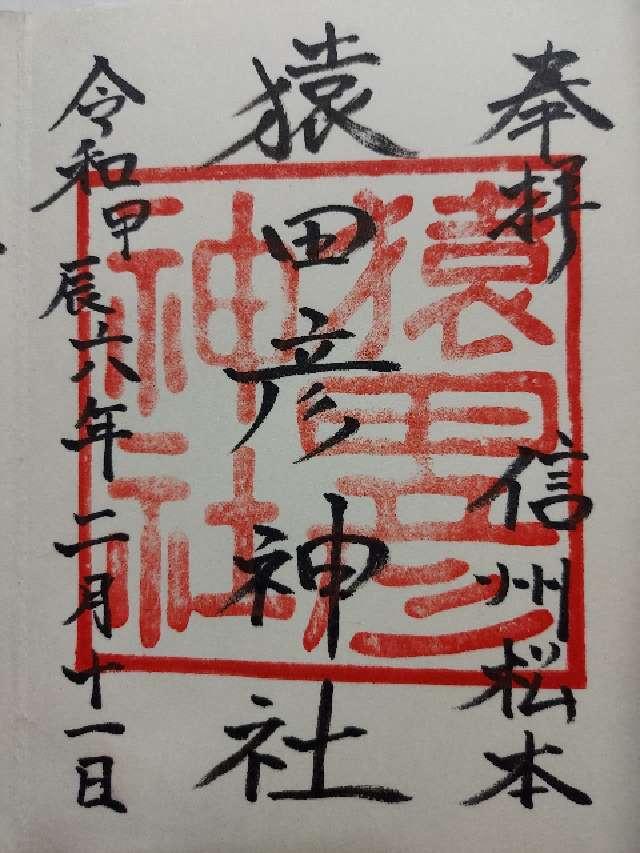 奉拝
信州松本
猿田彦神社
令和甲辰六年二月十一日
猿田彦
神社